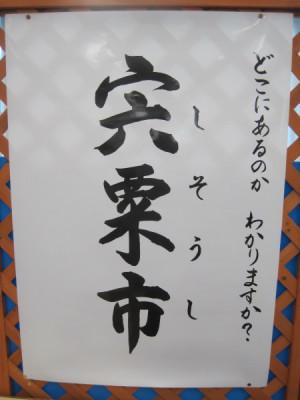 どこにあるのか わかりますか?
しそうし
宍粟市